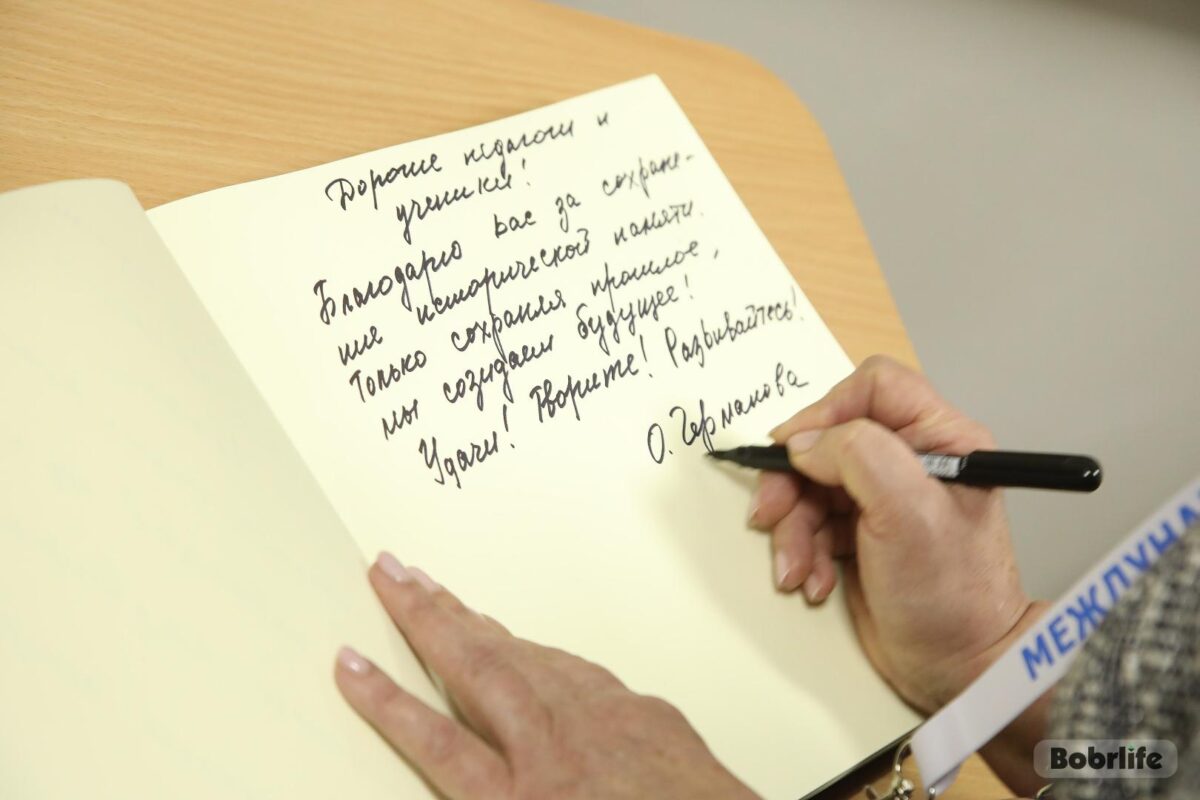 Дорогие педагоги и
ученики!
Благодарю вас за сохране-
ние исторической памяти.
Только сохраняя прошлое,
мы созидаем будущее!
Удачи! Творите! Развивайтесь!
О. Германова
МЕЖДУНА
Bobrlife